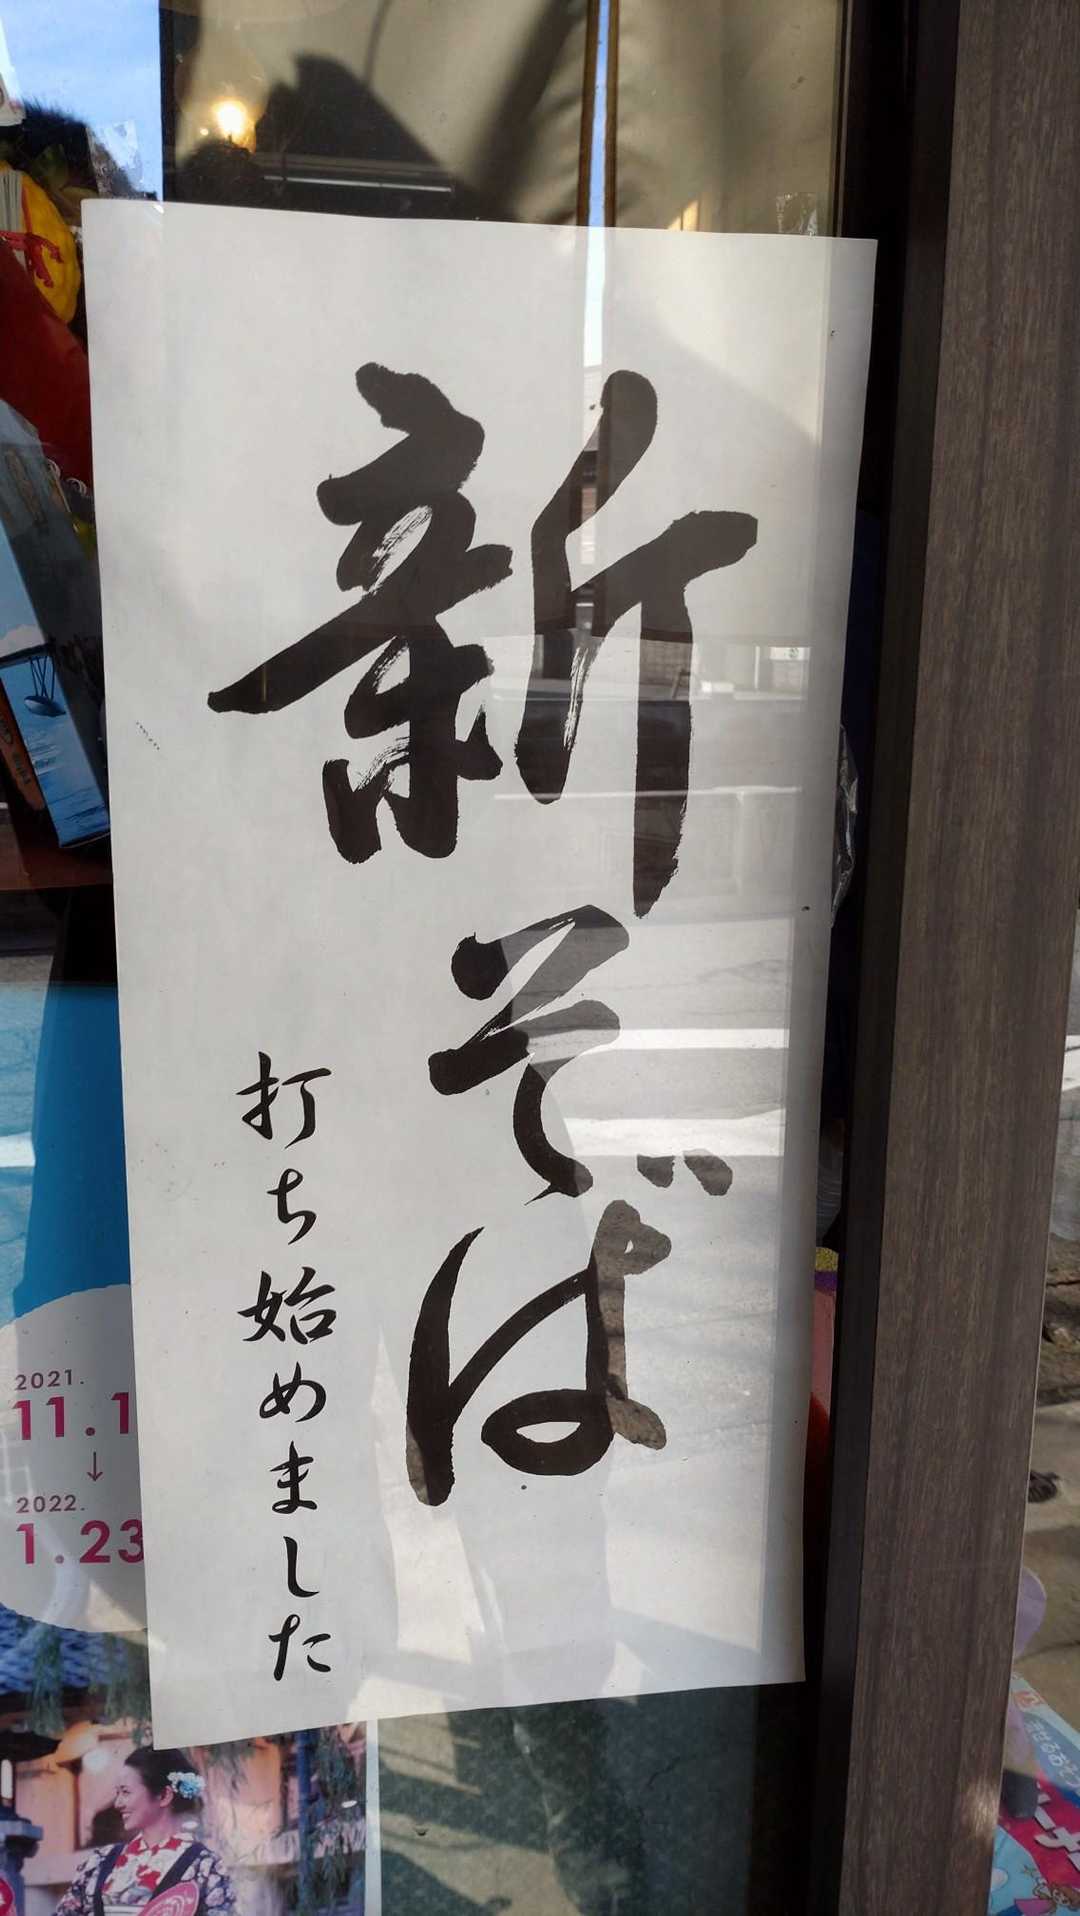 新そば
打ち始めました
2021.
11.1
↓
2022.
1.23